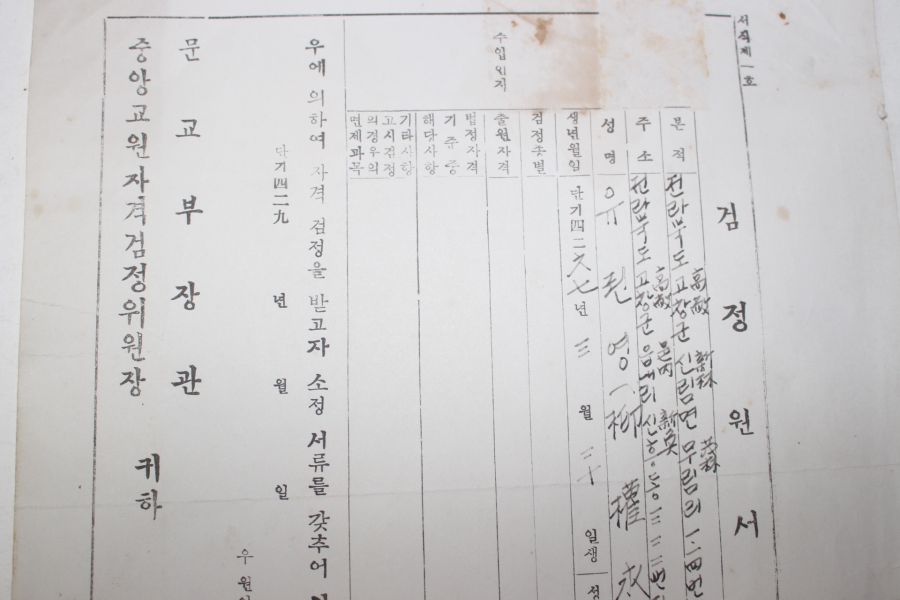 서식제一호
검정원서
본적 전라북도 고창군 신림면 무림리
高敞 新林 茂林
주소 전라북도 고창군 읍내리
高敞 邑內
성명 유 권영 柳 權
생년월일 단기四二六七年 三 월 二十 일생
검정종별
수입인지
출원자격
법정자격기준중해당사항
기타사항
고시검정의경우의면제과목
우에 의하여 자격 검정을 받고자 소정 서류를 갖추어
단기四二九 년 월 일
우 원
문교부장관
중앙교원자격검정위원장 귀하